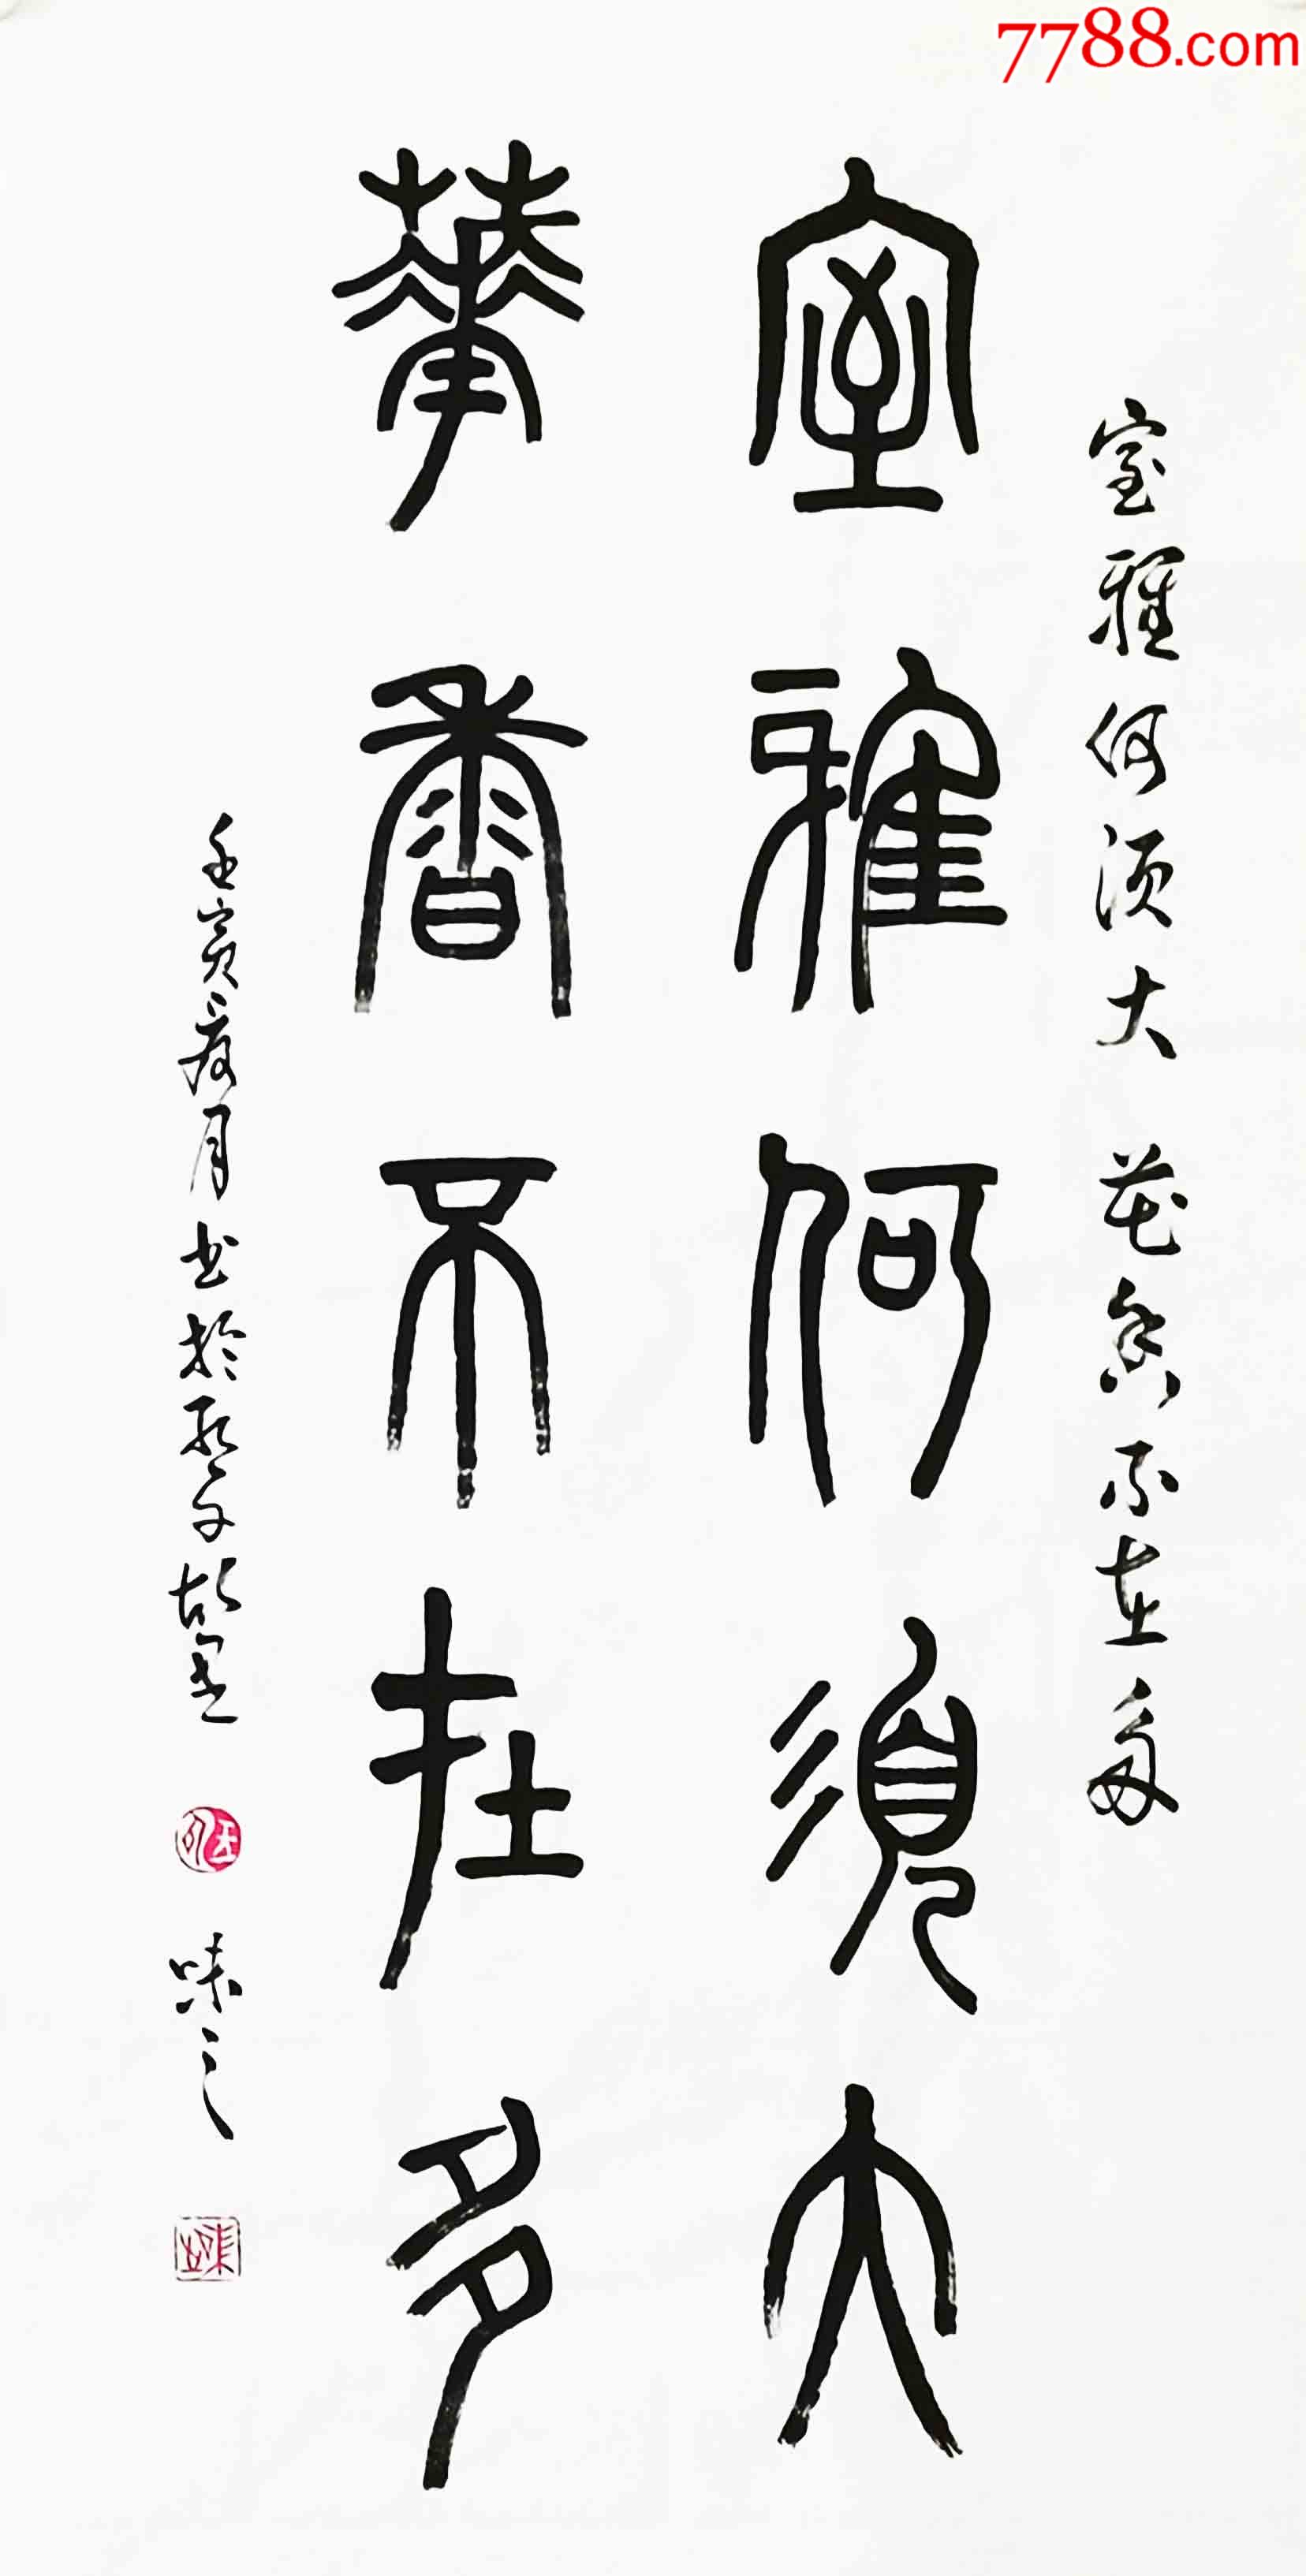 7788.com
室雅何须大 花香不在多
室雅何須大
華香不在多
壬寅 月书於
味之